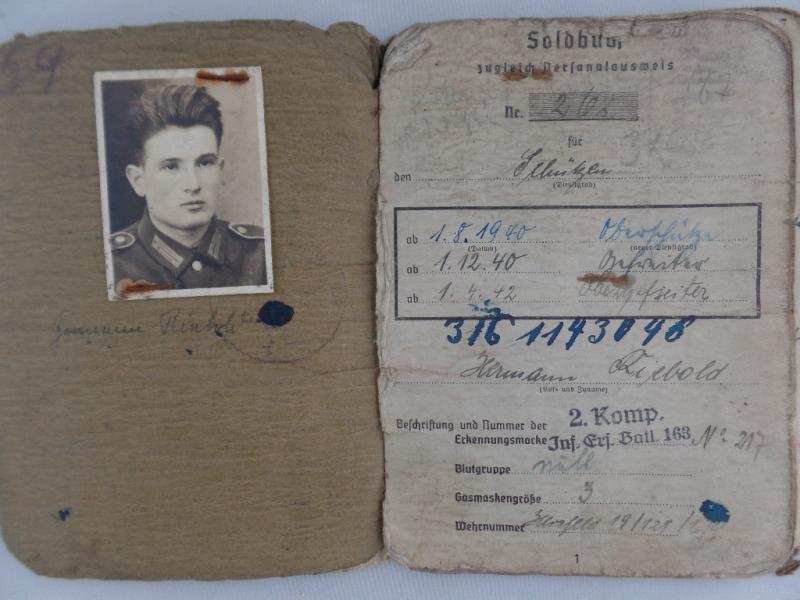 59
Soldbuch
zugleich Personalausweis
Nr. 268
für
den Schützen
(Dienstgrad)
ab 1.8.1940 Oberschütze
(Datum) (neuer Dienstgrad)
ab 1.12.40 Gefreiter
ab 1.4.42 Obergefreiter
Hermann
(Vor- und Zuname)
Beschriftung und Nummer der
Erkennungsmarke 2. Komp.
Inf. Ers. Batl. 163 No 217
Blutgruppe null
Gasmaskengröße 3
Wehrnummer Hersfeld 19/121/
1